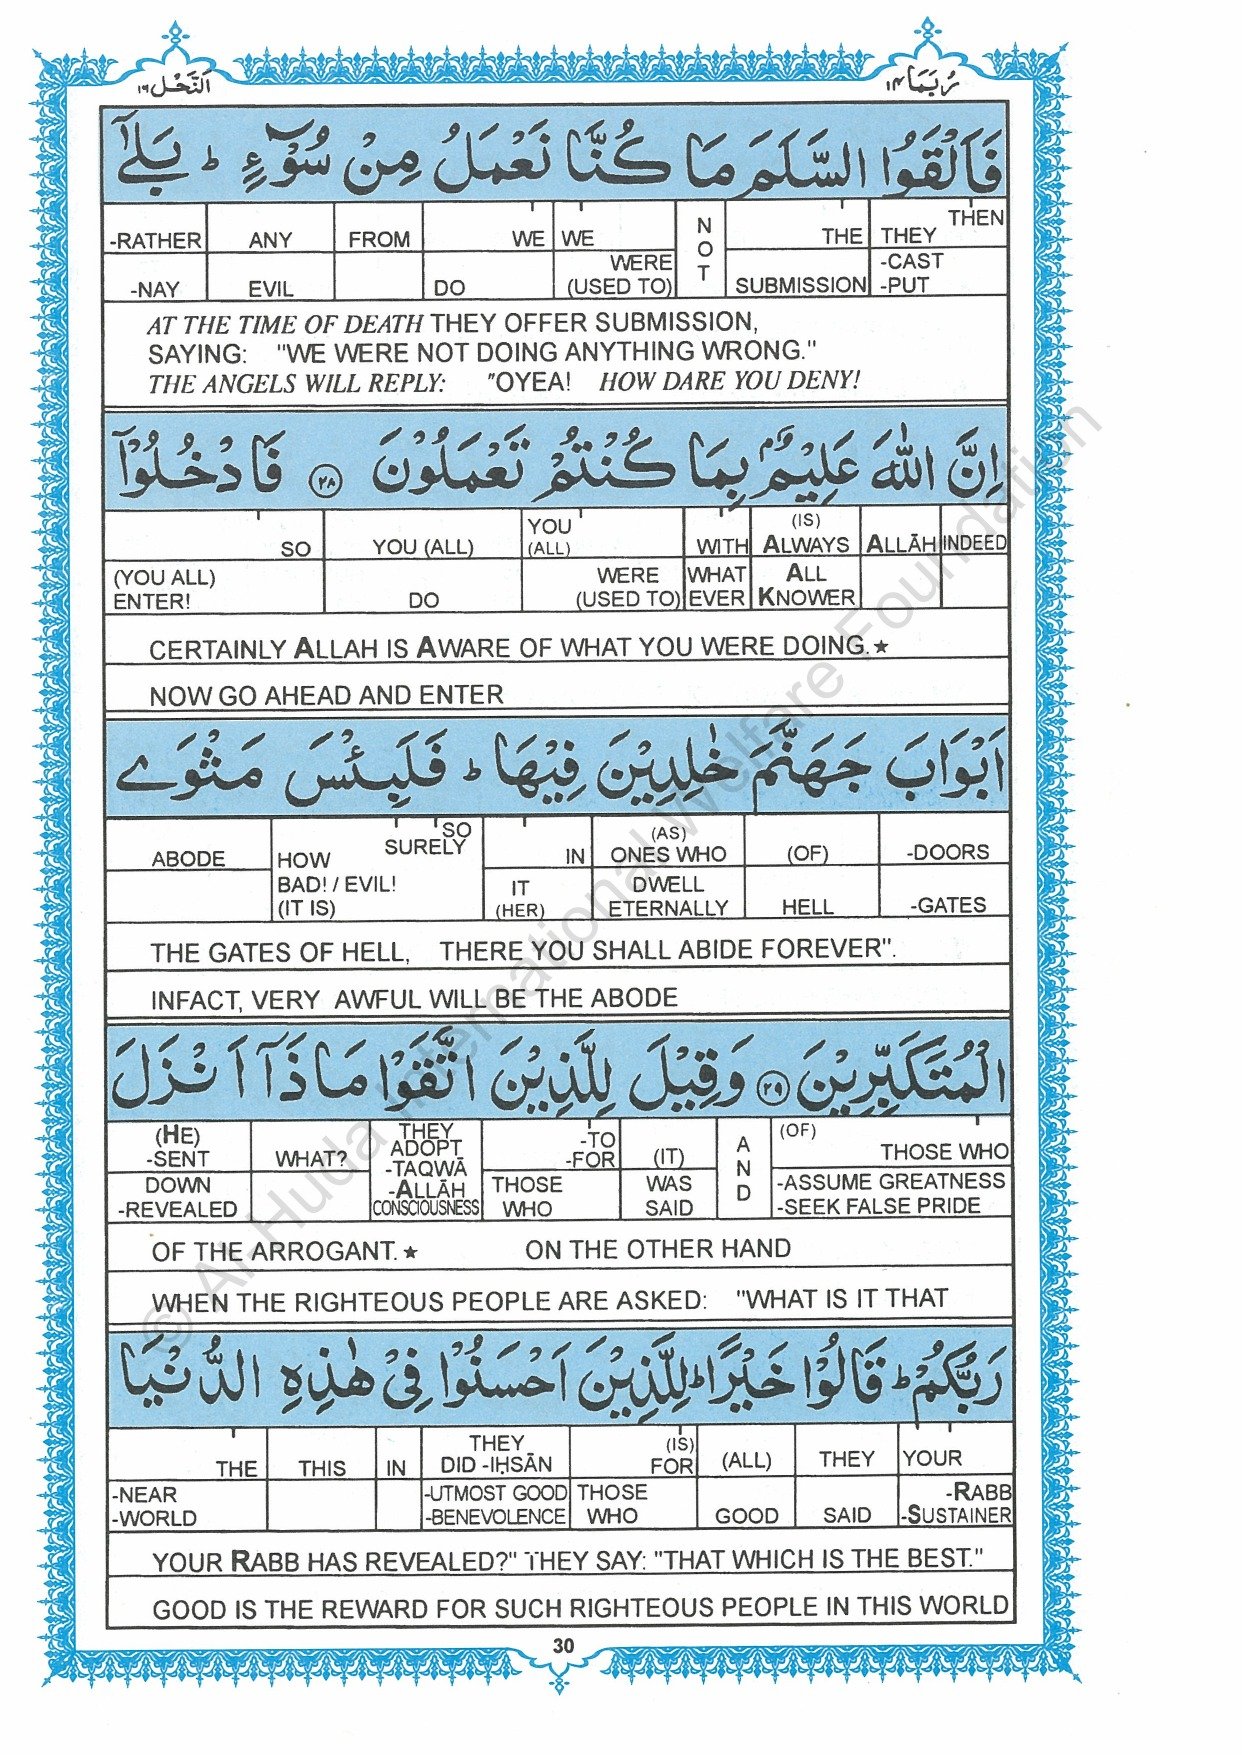 اَلنَّحْل ١٦
رُبَمَا ١٤
فَاَلْقَوُا السَّلَمَ مَا كُنَّا نَعْمَلُ مِنْ سُوْٓءٍ ؕ بَلٰٓى
-RATHER ANY FROM WE WE NOT THE THEY THEN
-NAY EVIL DO WERE (USED TO) SUBMISSION -CAST -PUT
AT THE TIME OF DEATH THEY OFFER SUBMISSION,
SAYING: "WE WERE NOT DOING ANYTHING WRONG."
THE ANGELS WILL REPLY: "OYEA! HOW DARE YOU DENY!
اِنَّ اللّٰهَ عَلِيْمٌۢ بِمَا كُنْتُمْ تَعْمَلُوْنَ ٢٨ فَادْخُلُوْٓا
SO YOU (ALL) YOU (ALL) WITH (IS) ALWAYS ALLĀH INDEED
(YOU ALL) ENTER! DO WERE (USED TO) WHAT EVER ALL KNOWER
CERTAINLY ALLAH IS AWARE OF WHAT YOU WERE DOING.★
NOW GO AHEAD AND ENTER
اَبْوَابَ جَهَنَّمَ خٰلِدِيْنَ فِيْهَا ؕ فَلَبِئْسَ مَثْوَى
ABODE HOW SURELY SO IN (AS) ONES WHO (OF) -DOORS
BAD! / EVIL! (IT IS) IT (HER) DWELL ETERNALLY HELL -GATES
THE GATES OF HELL, THERE YOU SHALL ABIDE FOREVER".
INFACT, VERY AWFUL WILL BE THE ABODE
الْمُتَكَبِّرِيْنَ ٢٩ وَقِيْلَ لِلَّذِيْنَ اتَّقَوْا مَاذَآ اَنْزَلَ
(HE) -SENT WHAT? THEY ADOPT -TO -FOR (IT) AND (OF) THOSE WHO
DOWN -REVEALED -TAQWĀ -ALLĀH CONSCIOUSNESS THOSE WHO WAS SAID -ASSUME GREATNESS -SEEK FALSE PRIDE
OF THE ARROGANT.★ ON THE OTHER HAND
WHEN THE RIGHTEOUS PEOPLE ARE ASKED: "WHAT IS IT THAT
رَبُّكُمْ ؕ قَالُوْا خَيْرًا ؕ لِلَّذِيْنَ اَحْسَنُوْا فِيْ هٰذِهِ الدُّنْيَا
THE THIS IN THEY DID -IḤSĀN (IS) FOR (ALL) THEY YOUR
-NEAR -WORLD -UTMOST GOOD -BENEVOLENCE THOSE WHO GOOD SAID -RABB -SUSTAINER
YOUR RABB HAS REVEALED?" THEY SAY: "THAT WHICH IS THE BEST."
GOOD IS THE REWARD FOR SUCH RIGHTEOUS PEOPLE IN THIS WORLD
30
© Al-Huda International Welfare Foundation